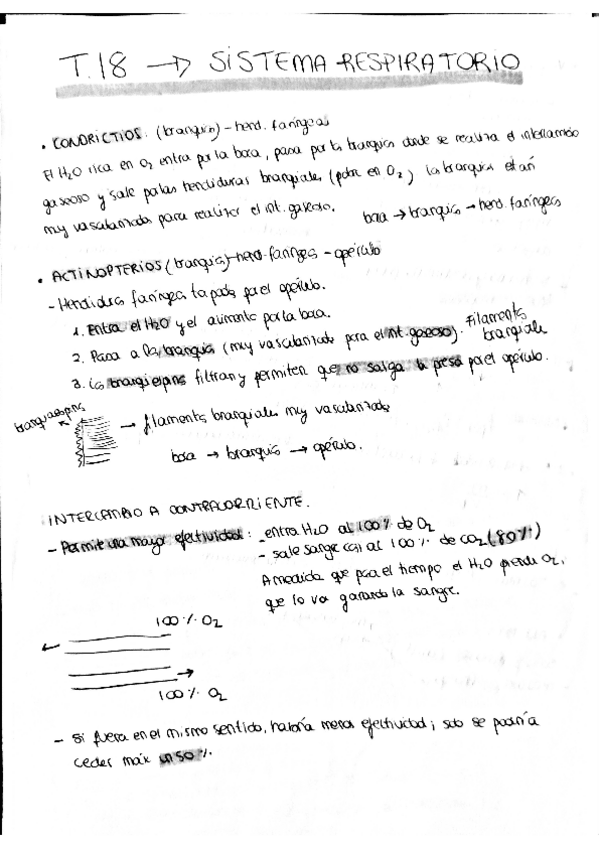 T.18 → SISTEMA RESPIRATORIO
• CONDRICTIOS: (branquias) - hend. faríngeas
El H2O rica en O2 entra por la boca, pasa por las branquias donde se realiza el intercambio
gaseoso y sale por las hendiduras branquiales (pobre en O2) las branquias están
muy vascularizadas para realizar el int. gaseoso.
boca → branquias → hend. faríngeas
• ACTINOPTERIOS (branquias) - hend faríngea - opérculo
- Hendiduras faríngeas tapadas por el opérculo.
1. Entra el H2O y el alimento por la boca.
2. Pasa a las branquias (muy vascularizado para el int. gaseoso). Filamentos
branquiales
3. las branquiespinas filtran y permiten que no salga la presa por el opérculo.
branquiespinas
→ filamentos branquiales muy vascularizados
boca → branquias → opérculo.
INTERCAMBIO A CONTRACORRIENTE.
- Permite una mayor efectividad: - entra H2O al 100% de O2
- sale sangre casi al 100% de CO2 (80%)
A medida que pasa el tiempo el H2O pierde O2,
que lo va ganando la sangre.
100% O2
←
→
100% O2
- si fuera en el mismo sentido, habría menos efectividad; solo se podría
ceder máx un 50%.